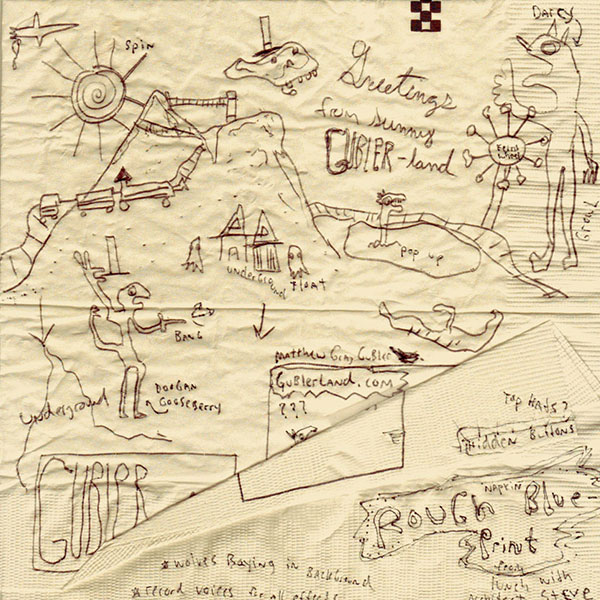 Darcy
Spin
Greetings
from sunny
GUBLER-land
Ferris
Wheel
Growl
pop up
underground
Float
BANG
Matthew Gray Gubler
GuBlerLand.com
???
DORGAN
GOOSEBERRY
Underground
Top Hats?
Hidden Buttons
GUBLER
NAPKIN
ROUGH Blue-
Print
from
lunch with
architect Steve
* wolves Baying in BackGround
* record voices for all effects